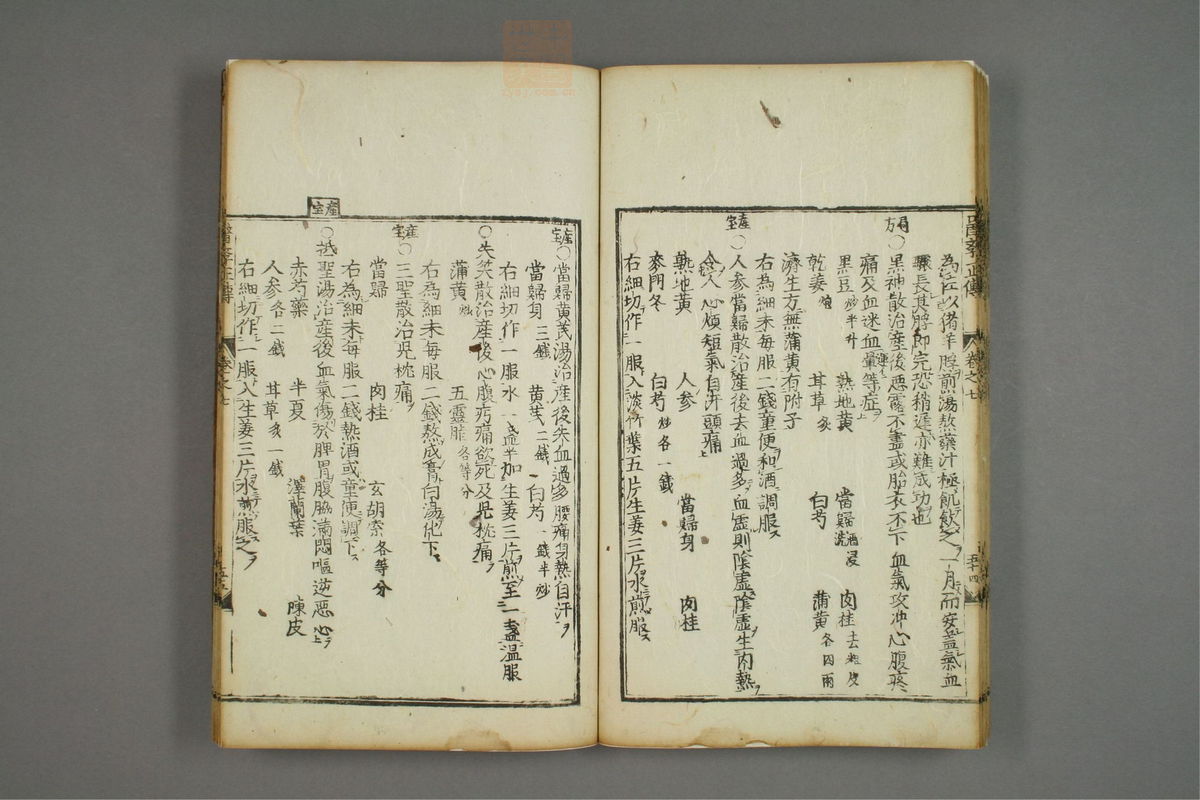 醫學正傳 卷之七 五十四
為江以猪羊脬煎湯熬藥汁極飢飲之一月而安蓋氣血
驟長其脬即完恐稍遲亦難成功也
局方
○黑神散治產後惡露不盡或胎衣不下血氣攻冲心腹疼
痛及血迷血暈等症
黑豆炒半升 熟地黃 當歸酒浸洗 肉桂去粗皮
乾姜炮 甘草炙 白芍 蒲黃各四兩
濟生方無蒲黃有附子
右為細末每服二錢童便和酒調服
產宝
○人參當歸散治產後去血過多血虛則陰虛陰虛生內熱
令人心煩短氣自汗頭痛
熟地黃 人參 當歸身 肉桂
麥門冬 白芍炒各一錢
右細切作一服入淡竹葉五片生姜三片水煎服
產宝
○當歸黃芪湯治產後失血過多腰痛身熱自汗
當歸身三錢 黃芪二錢 白芍一錢半炒
右細切作一服水一盞半加生姜三片煎至一盞溫服
○失笑散治產後心腹疠痛欲死及兒枕痛
蒲黃炒 五靈脂各等分
右為細末每服二錢熬成膏白湯化下
產宝
○三聖散治兒枕痛
當歸 肉桂 玄胡索各等分
右為細末每服二錢熱酒或童便調下
產宝
○祗聖湯治產後血氣傷於脾胃腹脇滿悶嘔逆惡心
赤芍藥 半夏 澤蘭葉 陳皮
人參各二錢 甘草炙一錢
右細切作一服入生姜三片水煎服之
醫學正傳 卷之七